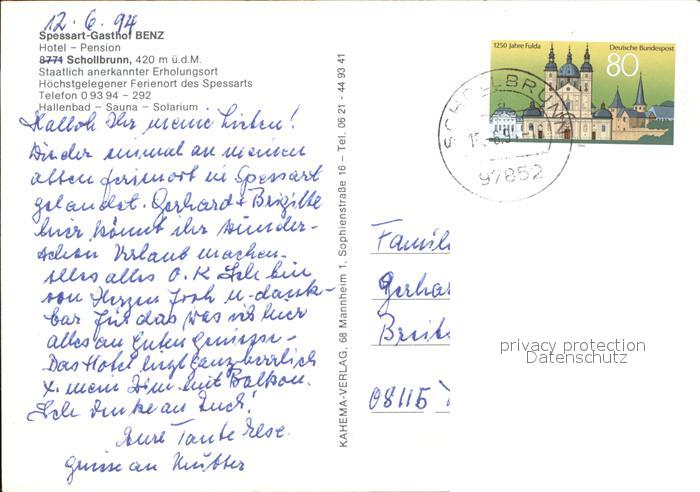 12.6.94
Spessart-Gasthof BENZ
Hotel – Pension
8771 Schollbrunn, 420 m ü.d.M.
Staatlich anerkannter Erholungsort
Höchstgelegener Ferienort des Spessarts
Telefon 0 93 94 – 292
Hallenbad – Sauna – Solarium
Halloh Ihr meine Lieben!
Wieder einmal an meinen
alten Ferienort im Spessart
gelandet. Gerhard + Brigitte
hier könnt ihr wunder-
schön Urlaub machen.
alles alles O.K Ich bin
von Herzen froh u. dank-
bar für das, was ich hier
alles an Guten
Das Hotel liegt ganz herrlich
mein Zim. mit Balkon.
Ich denke an Euch!
Eure Tante
Grüsse an Mutter
KAHEMA-VERLAG, 68 Mannheim 1, Sophienstraße 16 – Tel. 06 21 - 44 93 41
1250 Jahre Fulda
Deutsche Bundespost
80
SCHOLLBRUNN
97852
Famili
Gerhar
Breite
08115
privacy protection
Datenschutz